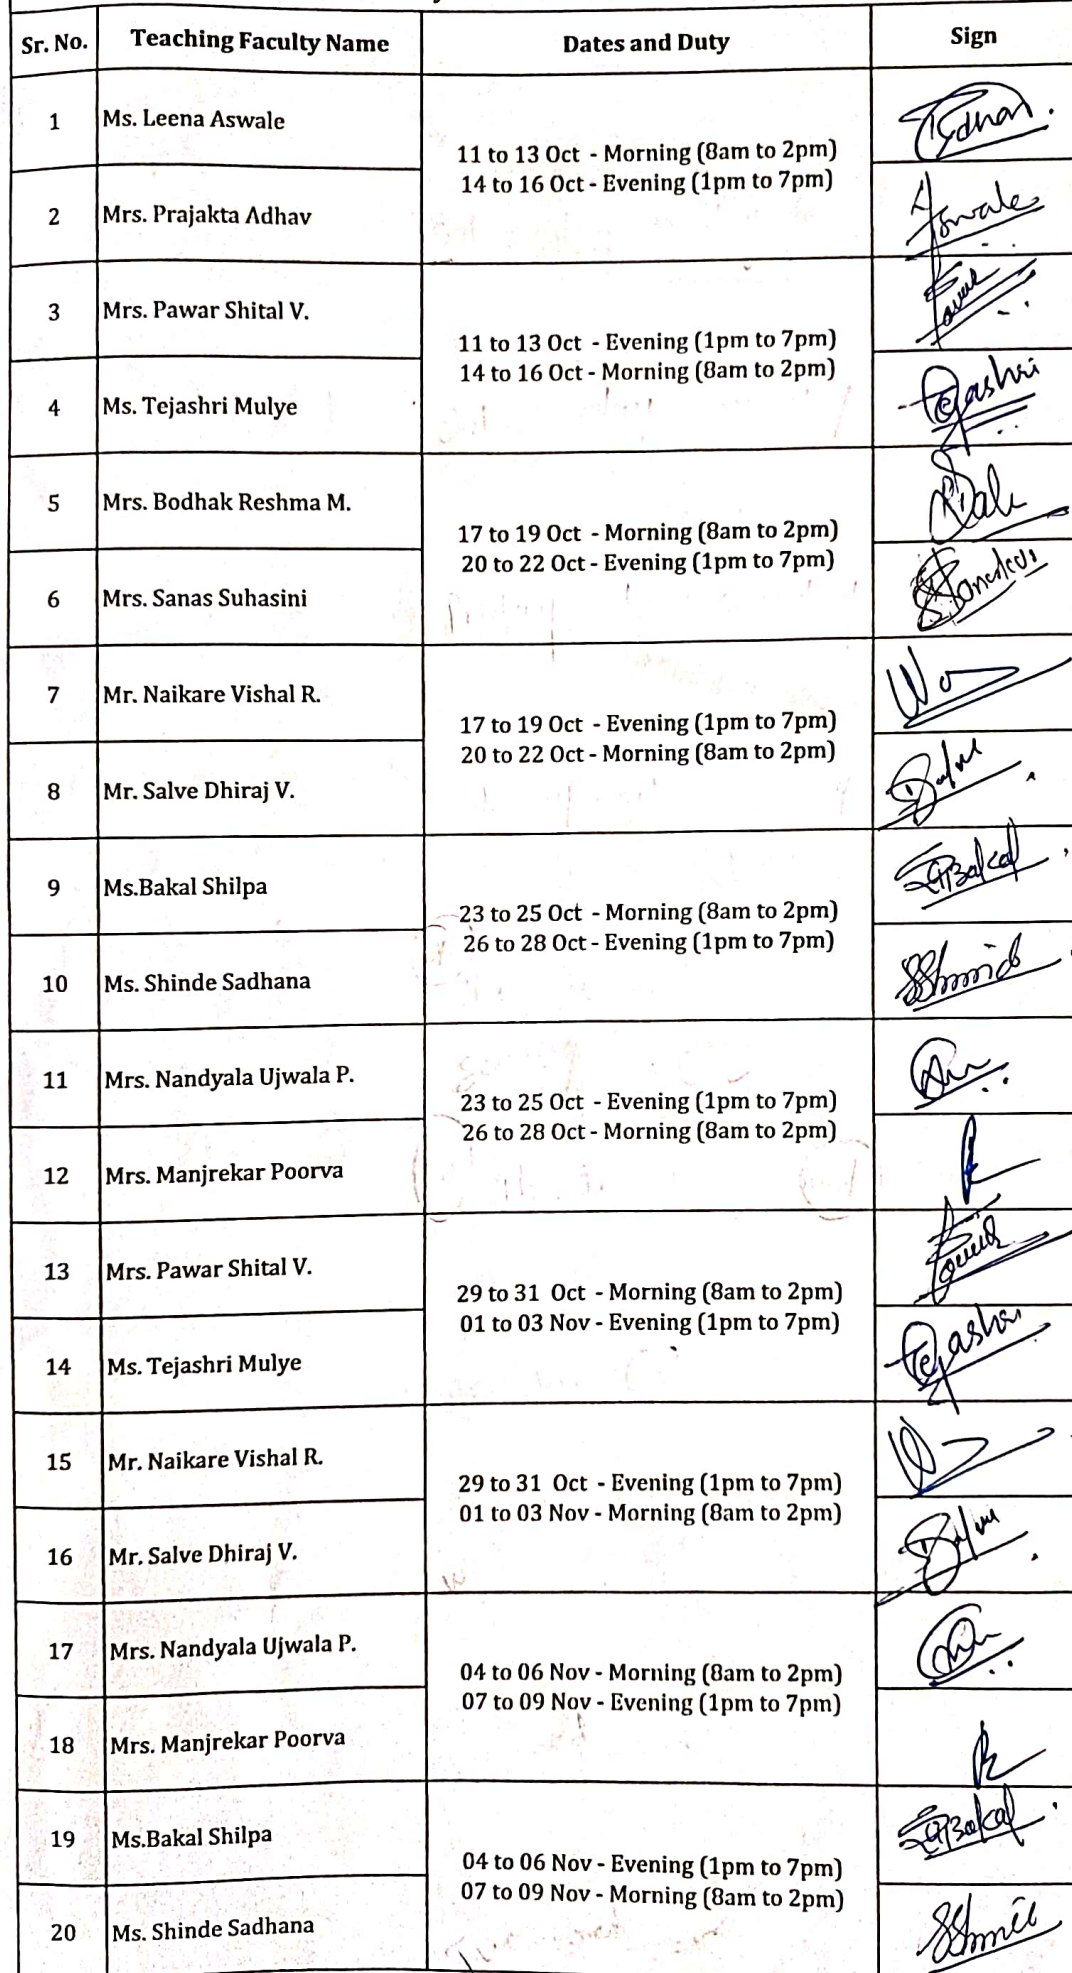 Sr. No. Teaching Faculty Name Dates and Duty Sign
1 Ms. Leena Aswale
11 to 13 Oct - Morning (8am to 2pm)
14 to 16 Oct - Evening (1pm to 7pm)
2 Mrs. Prajakta Adhav
Aswale
3 Mrs. Pawar Shital V.
11 to 13 Oct - Evening (1pm to 7pm)
14 to 16 Oct - Morning (8am to 2pm)
4 Ms. Tejashri Mulye
Tejashri
5 Mrs. Bodhak Reshma M.
17 to 19 Oct - Morning (8am to 2pm)
20 to 22 Oct - Evening (1pm to 7pm)
6 Mrs. Sanas Suhasini
7 Mr. Naikare Vishal R.
17 to 19 Oct - Evening (1pm to 7pm)
20 to 22 Oct - Morning (8am to 2pm)
8 Mr. Salve Dhiraj V.
9 Ms.Bakal Shilpa
23 to 25 Oct - Morning (8am to 2pm)
26 to 28 Oct - Evening (1pm to 7pm)
10 Ms. Shinde Sadhana
11 Mrs. Nandyala Ujwala P.
23 to 25 Oct - Evening (1pm to 7pm)
26 to 28 Oct - Morning (8am to 2pm)
12 Mrs. Manjrekar Poorva
13 Mrs. Pawar Shital V.
29 to 31 Oct - Morning (8am to 2pm)
01 to 03 Nov - Evening (1pm to 7pm)
14 Ms. Tejashri Mulye
Tejashri
15 Mr. Naikare Vishal R.
29 to 31 Oct - Evening (1pm to 7pm)
01 to 03 Nov - Morning (8am to 2pm)
16 Mr. Salve Dhiraj V.
17 Mrs. Nandyala Ujwala P.
04 to 06 Nov - Morning (8am to 2pm)
07 to 09 Nov - Evening (1pm to 7pm)
18 Mrs. Manjrekar Poorva
19 Ms.Bakal Shilpa
04 to 06 Nov - Evening (1pm to 7pm)
07 to 09 Nov - Morning (8am to 2pm)
20 Ms. Shinde Sadhana